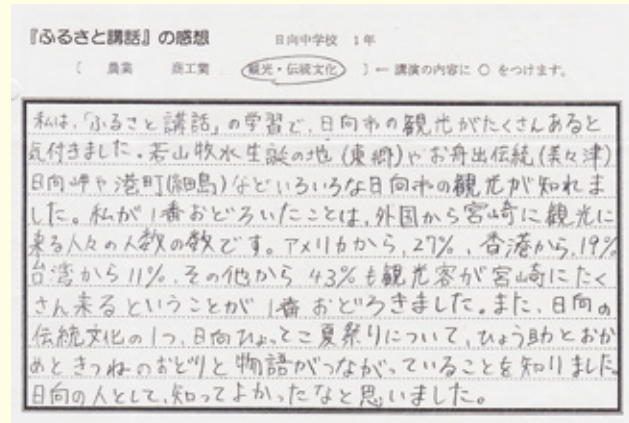 『ふるさと講話』の感想 日向中学校 1年
〔 農業 商工業 観光・伝統文化 〕← 講演の内容に ○ をつけます。
私は、「ふるさと講話」の学習で、日向市の観光がたくさんあると
気付きました。若山牧水生誕の地(東郷)やお舟出伝統(美々津)
日向岬や港町(細島)などいろいろな日向市の観光が知れま
した。私が1番おどろいたことは、外国から宮崎に観光に
来る人々の人数の数です。アメリカから、27%、香港から、19%
台湾から11%、その他から 43%も観光客が宮崎にたく
さん来るということが1番おどろきました。また、日向の
伝統文化の1つ、日向ひょっとこ夏祭りについて、ひょう助とおか
めときつねのおどりと物語がつながっていることを知りました。
日向の人として、知ってよかったなと思いました。